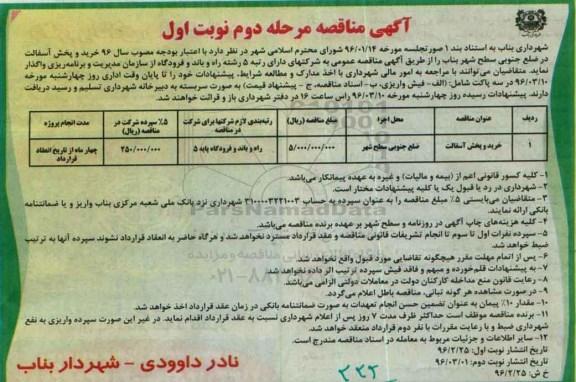 آگهی مناقصه مرحله دوم نوبت اول
شهرداری بناب به استناد بند ۱ صورتجلسه مورخه ۹۶/۰۱/۱۴ شورای محترم اسلامی شهر در نظر دارد با اعتبار بودجه مصوب سال ۹۶ خرید و پخش آسفالت
در ضلع جنوبی سطح شهر بناب را از طریق آگهی مناقصه عمومی به شرکتهای دارای رتبه ۵ رشته راه و باند و فرودگاه از سازمان مدیریت و برنامه‌ریزی واگذار
نماید. متقاضیان می‌توانند با مراجعه به امور مالی شهرداری با اخذ مدارک و مطالعه شرایط، پیشنهادات خود را تا پایان وقت اداری روز چهارشنبه مورخه
۹۶/۰۳/۱۰ در سه پاکت شامل: (الف- فیش واریزی، ب- اسناد مناقصه، ج - پیشنهاد قیمت) به صورت سربسته به دبیرخانه شهرداری تسلیم و رسید دریافت
دارند. پیشنهادات رسیده روز چهارشنبه مورخه ۹۶/۰۳/۱۰ راس ساعت ۱۶ در دفتر شهرداری باز و قرائت خواهد شد.
ردیف عنوان مناقصه محل اجرا مبلغ مناقصه (ریال) رتبه‌بندی لازم شرکتها برای شرکت در مناقصه ۵٪ سپرده شرکت در مناقصه (ریال) مدت انجام پروژه
۱ خرید و پخش آسفالت ضلع جنوبی سطح شهر ۵/۰۰۰/۰۰۰/۰۰۰ راه و باند و فرودگاه پایه ۵ ۲۵۰/۰۰۰/۰۰۰ چهار ماه از تاریخ انعقاد قرارداد
۱- کلیه کسور قانونی اعم از (بیمه و مالیات) و غیره به عهده پیمانکار می‌باشد.
۲- شهرداری در رد یا قبول یک یا کلیه پیشنهادات مختار است.
۳- متقاضیان می‌بایستی ۵٪ مبلغ مناقصه را به عنوان سپرده به حساب ۳۱۰۰۰۰۳۲۲۱۰۰۳ شهرداری نزد بانک ملی شعبه مرکزی بناب واریز و یا ضمانتنامه
بانکی ارائه نمایند.
۴- کلیه هزینه‌های چاپ آگهی در روزنامه و سطح شهر بر عهده برنده مناقصه می‌باشد.
۵- سپرده نفرات اول تا سوم تا انجام تشریفات قانونی مناقصه و عقد قرارداد مسترد نخواهد شد و هرگاه حاضر به انعقاد قرارداد نشوند سپرده آنها به ترتیب
ضبط خواهد شد.
۶- پس از اتمام مهلت مقرر هیچگونه تقاضایی مورد قبول واقع نخواهد شد.
۷- به پیشنهادات قلم‌خورده و مبهم و فاقد فیش سپرده ترتیب اثر داده نخواهد شد.
۸- رعایت قانون منع مداخله کارکنان دولت در معاملات دولتی الزامی می‌باشد.
۹- در صورت مشاهده هر گونه تبانی، مناقصه باطل اعلام می‌گردد.
۱۰- مقدار ۱۰٪ پیمان به عنوان تضمین حسن انجام تعهدات به صورت ضمانتنامه بانکی در زمان عقد قرارداد اخذ خواهد شد.
۱۱- برنده مناقصه موظف است حداکثر ظرف مدت ۷ روز پس از اعلام شهرداری نسبت به عقد قرارداد اقدام نماید. در غیر این صورت سپرده واریزی به نفع
شهرداری ضبط و با رعایت مقررات با نفر دوم قرارداد منعقد خواهد شد.
۱۲- سایر اطلاعات و جزئیات مربوط به معامله در اسناد مناقصه مندرج است.
تاریخ انتشار نوبت اول: ۹۶/۲/۲۵
تاریخ انتشار نوبت دوم: ۹۶/۰۳/۰۱
خ ش: ۹۶/۲/۲۵
نادر داوودی - شهردار بناب
ParsNamadData